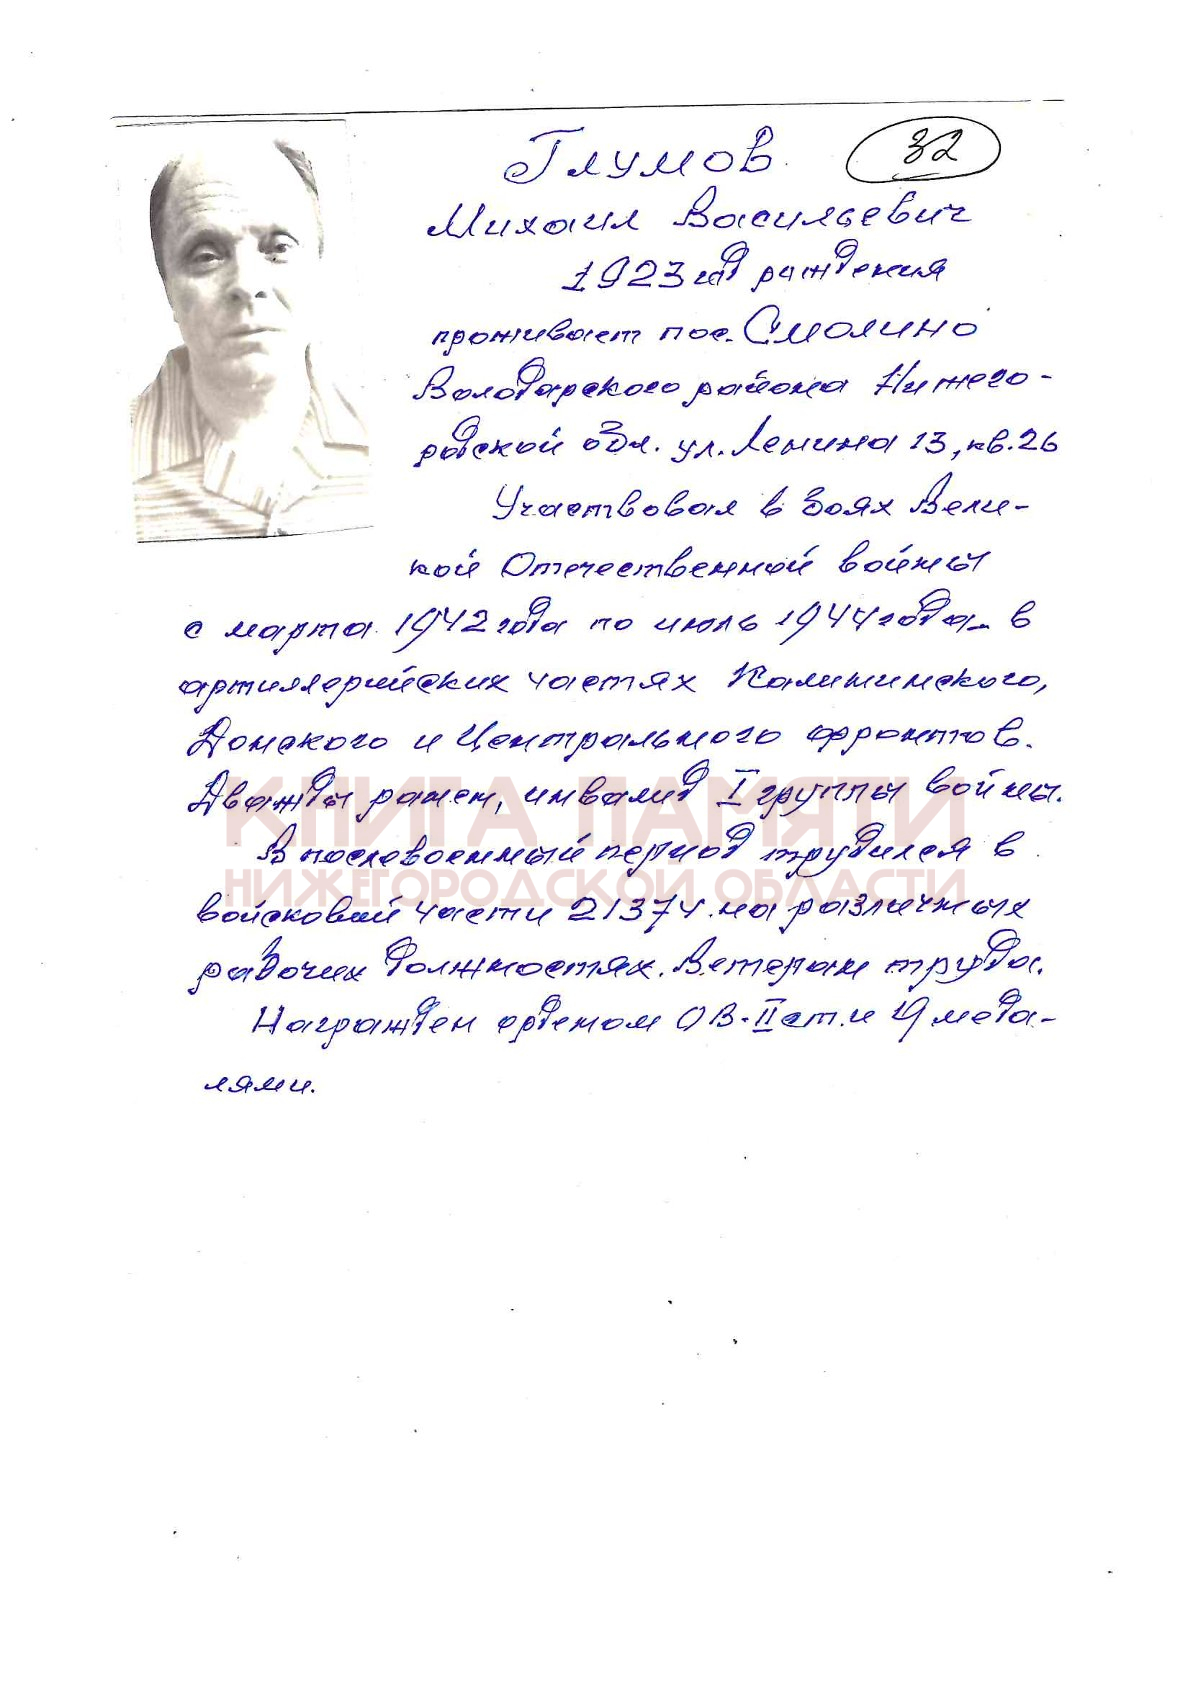 Глумов 32
Михаил Васильевич
1923 год рождения
проживает пос. Смолино
Володарского района Нижего-
родской обл. ул. Ленина 13, кв. 26
Участвовал в боях Вели-
кой Отечественной войны
с марта 1942 года по июль 1944 года в
артиллерийских частях Калининского,
Донского и Центрального фронтов.
Дважды ранен, инвалид I группы войны.
КНИГА ПАМЯТИ
В послевоенный период трудился в
НИЖЕГОРОДСКОЙ ОБЛАСТИ
войсковой части 21374 на различных
рабочих должностях. Ветеран труда.
Награжден орденом ОВ-II ст. и 9 меда-
лями.